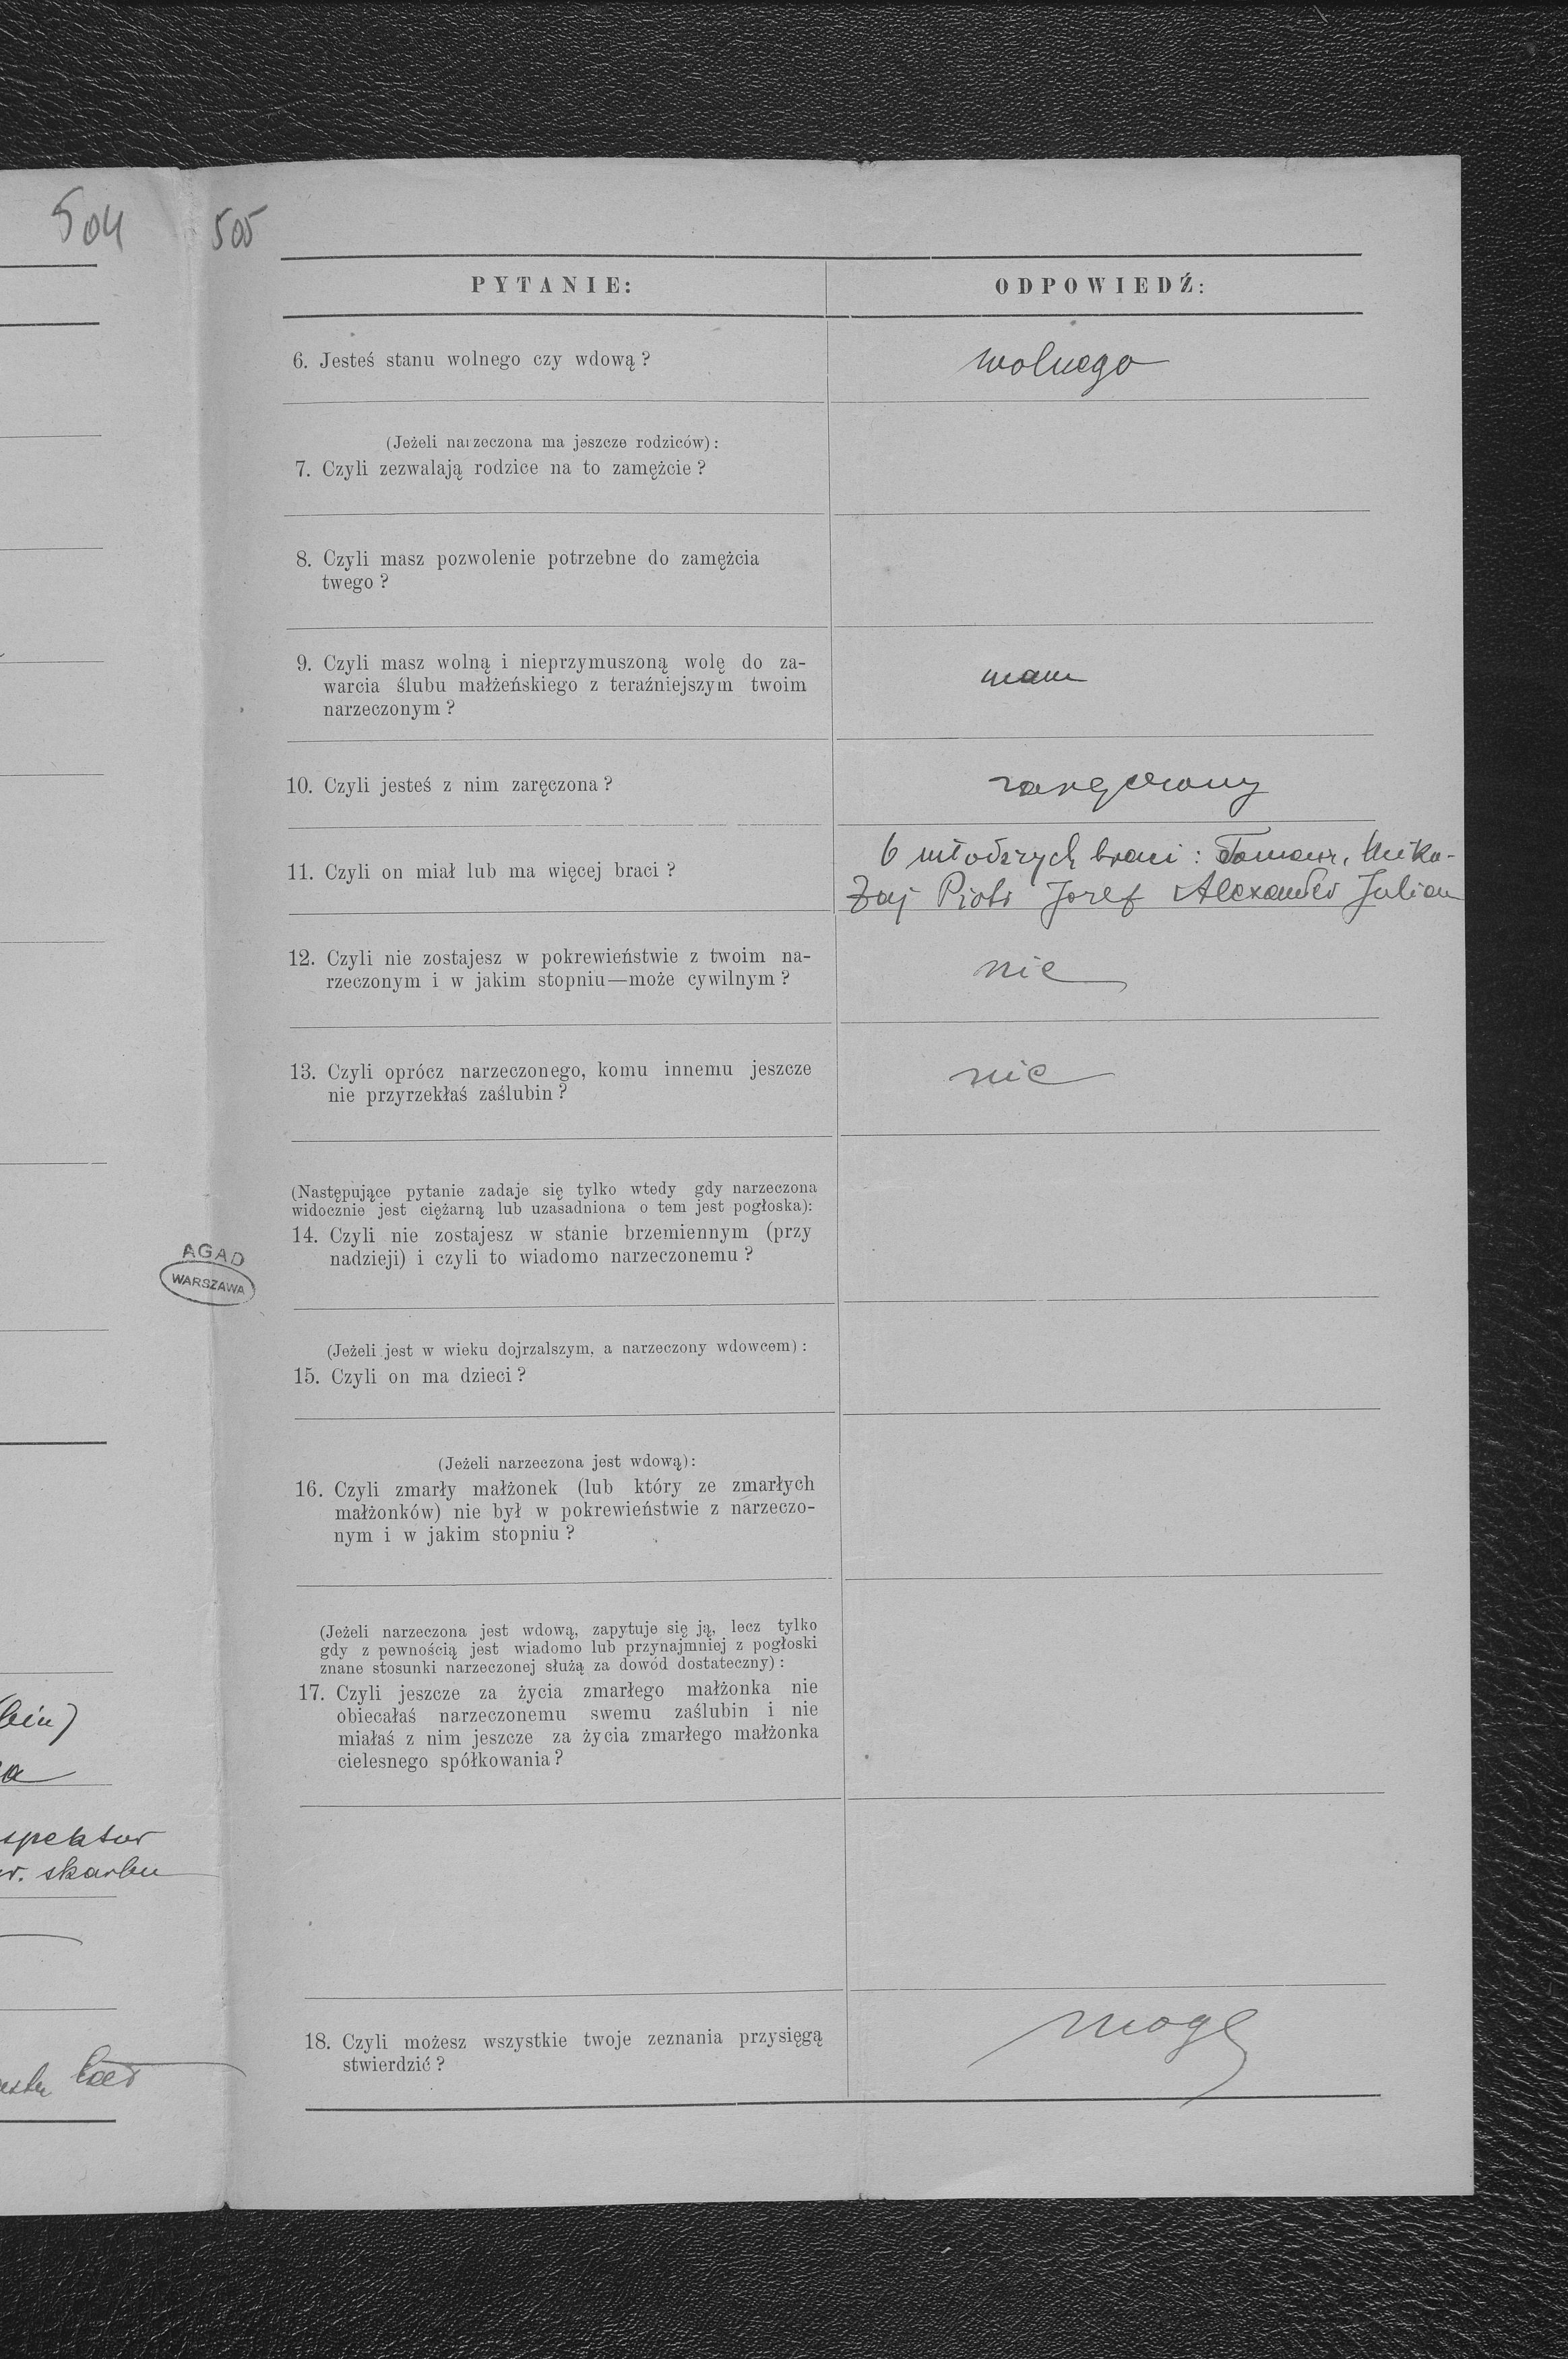 504
505
PYTANIE:
ODPOWIEDŹ:
6. Jesteś stanu wolnego czy wdową?
wolnego
(Jeżeli narzeczona ma jeszcze rodziców):
7. Czyli zezwalają rodzice na to zamężcie?
8. Czyli masz pozwolenie potrzebne do zamężcia
twego?
9. Czyli masz wolną i nieprzymuszoną wolę do za-
warcia ślubu małżeńskiego z teraźniejszym twoim
narzeczonym?
mam
10. Czyli jesteś z nim zaręczona?
zaręczony
11. Czyli on miał lub ma więcej braci?
6 młodszych braci: Tomasz, Miko-
łaj Piotr Jozef Alexander Julian
12. Czyli nie zostajesz w pokrewieństwie z twoim na-
rzeczonym i w jakim stopniu—może cywilnym?
nie
13. Czyli oprócz narzeczonego, komu innemu jeszcze
nie przyrzekłaś zaślubin?
nie
(Następujące pytanie zadaje się tylko wtedy gdy narzeczona
widocznie jest ciężarną lub uzasadniona o tem jest pogłoska):
14. Czyli nie zostajesz w stanie brzemiennym (przy
nadzieji) i czyli to wiadomo narzeczonemu?
AGAD
WARSZAWA
(Jeżeli jest w wieku dojrzalszym, a narzeczony wdowcem):
15. Czyli on ma dzieci?
(Jeżeli narzeczona jest wdową):
16. Czyli zmarły małżonek (lub który ze zmarłych
małżonków) nie był w pokrewieństwie z narzeczo-
nym i w jakim stopniu?
(Jeżeli narzeczona jest wdową, zapytuje się ją, lecz tylko
gdy z pewnością jest wiadomo lub przynajmniej z pogłoski
znane stosunki narzeczonej służą za dowód dostateczny):
17. Czyli jeszcze za życia zmarłego małżonka nie
obiecałaś narzeczonemu swemu zaślubin i nie
miałaś z nim jeszcze za życia zmarłego małżonka
cielesnego spółkowania?
spektor
skarbu
18. Czyli możesz wszystkie twoje zeznania przysięgą
stwierdzić?
mogę